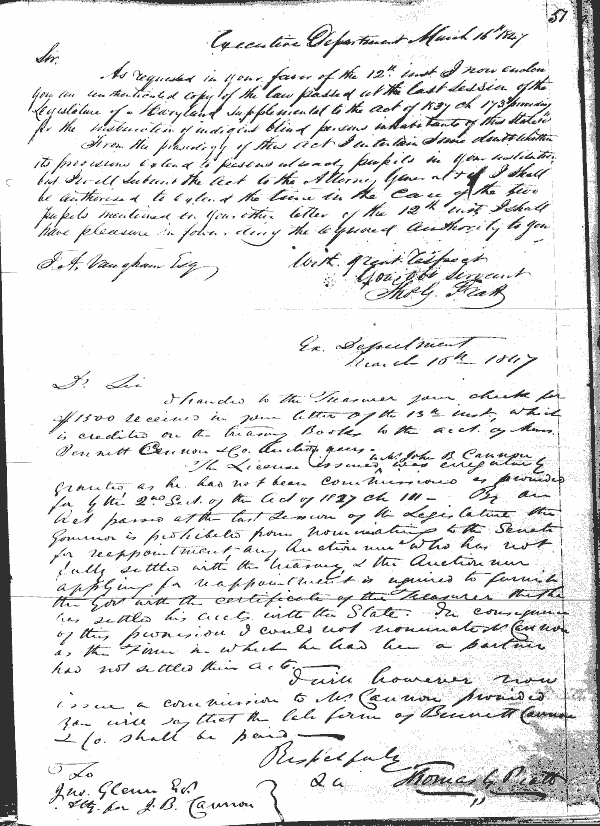 51
Executive Department March 16th 1847
Sir.
As requested in your favor of the 12th inst I now enclose
you an authenticated copy of the law passed at the last session of the
Legislature of Maryland supplemental to the act of 1827 ch 173 providing
for the instruction of indigent blind persons inhabitants of this State
From the phraseology of this act I entertain some doubts whether
its provisions extend to persons already pupils in your institution
but I will submit the act to the Attorney General & if I shall
be authorised to extend the time in the case of the two
pupils mentioned in your other letter of the 12th inst I shall
have pleasure in forwarding the required authority to you
With great respect
J. A. Vaughan Esq
Your obt servant
Tho G. Pratt
Ex. Department
March 16th 1847
Dr Sir
I handed to the Treasurer your check for
$1500 received in your letter of the 13th inst, which
is credited on the Treasury Books to the acct. of Messrs
Bennett Cannon & Co. Auctioneers.
The License issued to Mr. John B Cannon was irregularly
granted as he had not been commissioned as provided
for by the 2nd Sect. of the Act of 1827 ch 111 - By an
Act passed at the last session of the Legislature the
Governor is prohibited from nominating to the Senate
for reappointment any Auctioneer who has not
fully settled with the Treasury & the Auctioneer
applying for reappointment is required to furnish
the Govr with the certificate of the Treasurer that he
has settled his accts with the State. In consequence
of this provision I could not nominate Mr Cannon
as the Firm in which he had been a partner
had not settled their acct.
I will however now
issue a commission to Mr Cannon provided
you will say that the late firm of Bennett Cannon
& Co. shall be paid
Respectfully
To
&a Thomas G Pratt
Jno. Glenn Esq
Atty. for J. B. Cannon